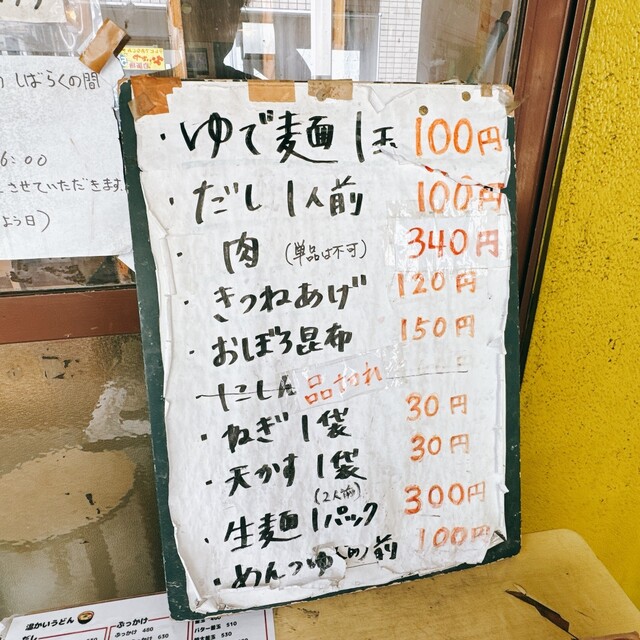 しばらくの間
6:00
させていただきます。
よう日)
・ゆで麺1玉 100円
・だし1人前 100円
・肉(単品は不可) 340円
・きつねあげ 120円
・おぼろ昆布 150円
にしん 品切れ
・ねぎ1袋 30円
・天かす1袋 30円
(2人前)
・生麺1パック 300円
・めんつゆ 人前 100円
温かいうどん
ぶっかけ
だし
ぶっかけ 480
バター醤玉 510
530
630